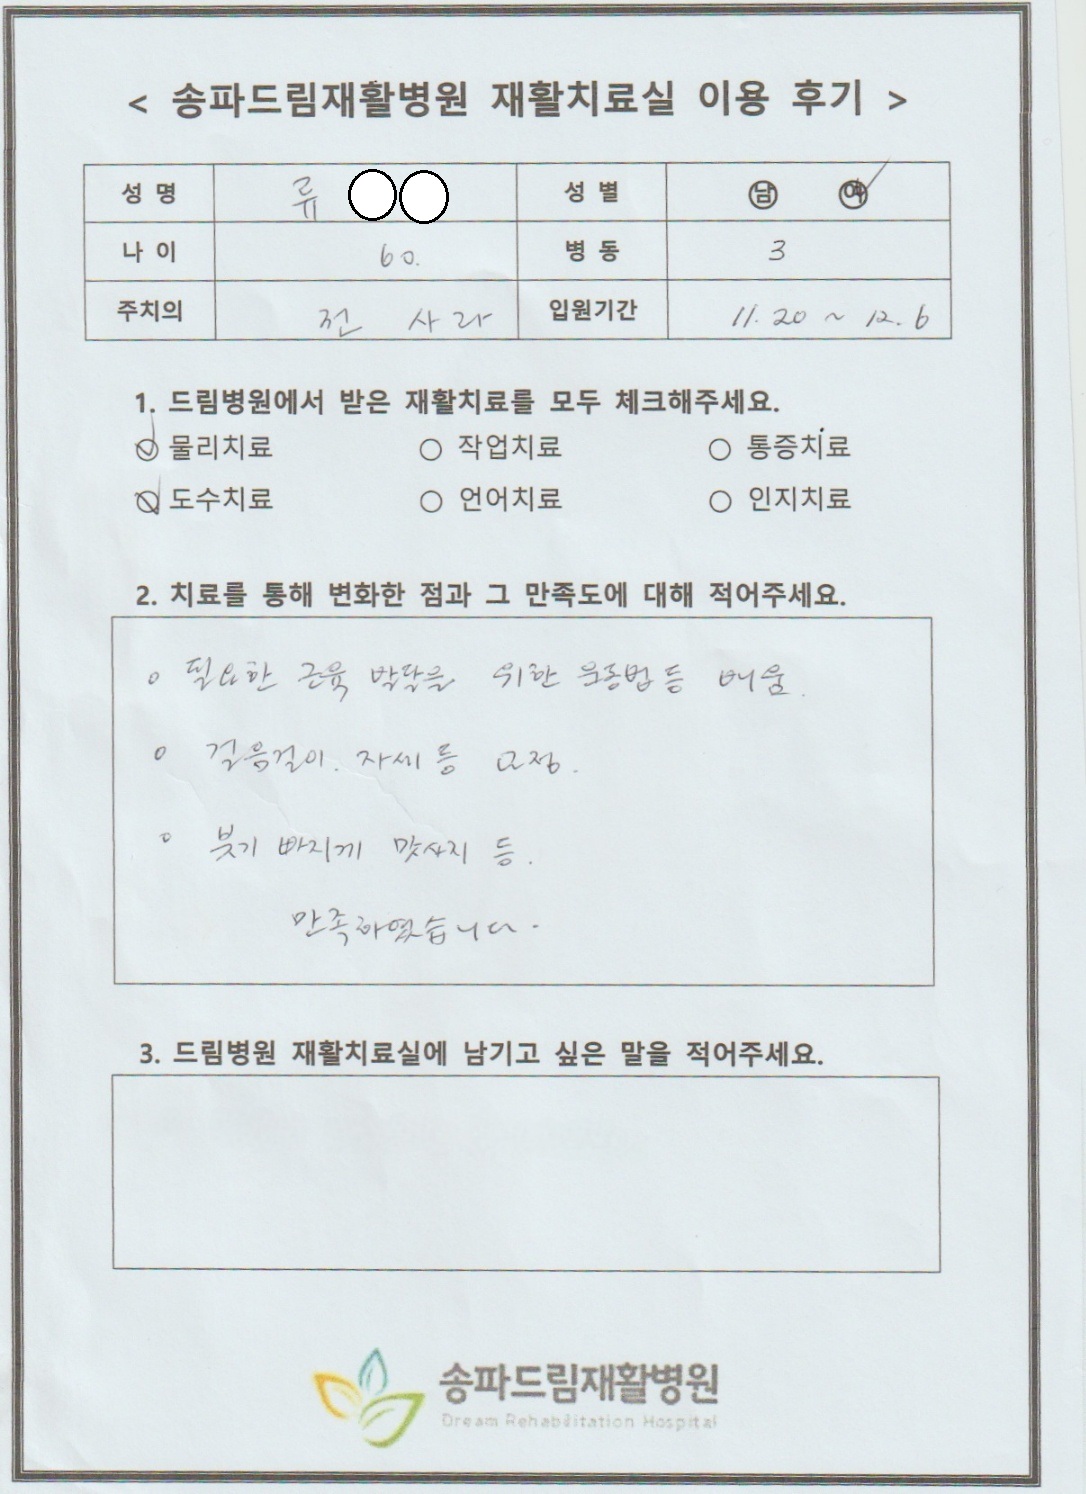 < 송파드림재활병원 재활치료실 이용 후기 >
성 명 류 성 별 남 여
나 이 60. 병 동 3
주치의 전 사라 입원기간 11. 20 ~ 12. 6
1. 드림병원에서 받은 재활치료를 모두 체크해주세요.
물리치료 작업치료 통증치료
도수치료 언어치료 인지치료
2. 치료를 통해 변화한 점과 그 만족도에 대해 적어주세요.
필요한 근육 발달을 위한 운동법 등 배움.
걸음걸이. 자세 등 교정.
붓기 빠지게 맛사지 등.
만족하였습니다.
3. 드림병원 재활치료실에 남기고 싶은 말을 적어주세요.
송파드림재활병원
Dream Rehabilitation Hospital